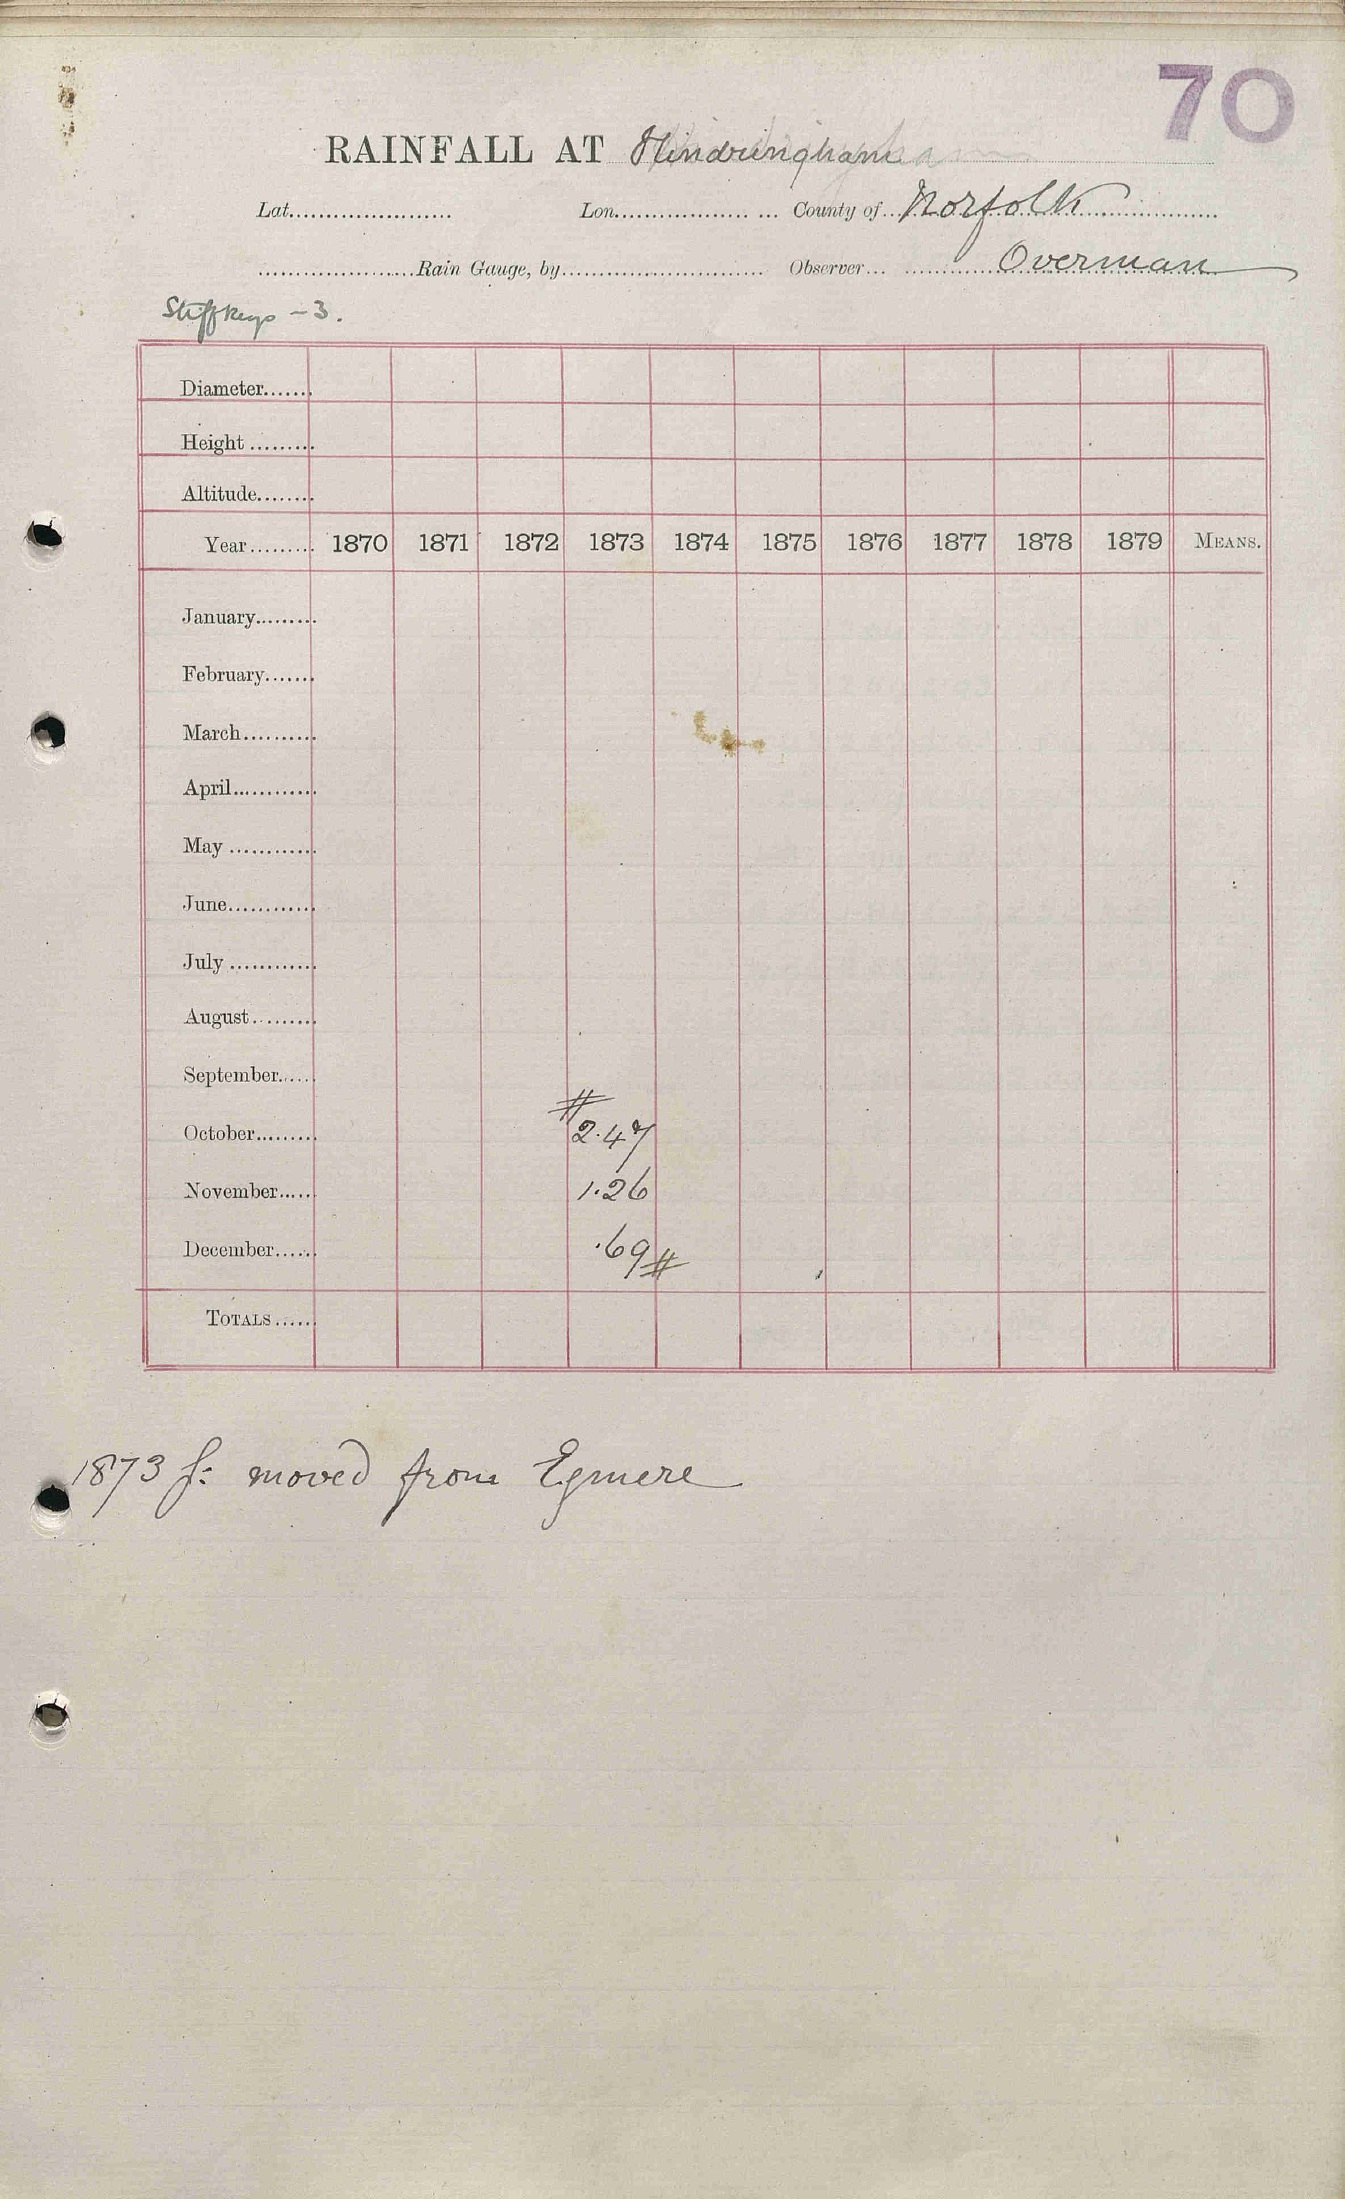 70
RAINFALL AT Hindringham
Lat...................... Lon.................. ... County of... Norfolk
.....................Rain Gauge, by........................... Observer... Overman
Stiffkey - 3.
Diameter.......
Height .........
Altitude........
Year......... 1870 1871 1872 1873 1874 1875 1876 1877 1878 1879 MEANS.
January.........
February.......
March..........
April............
May ............
June............
July ............
August.........
September......
#
October......... 2.47
November..... 1.26
December...... .69 #
TOTALS ......
1873 f: moved from Egmere